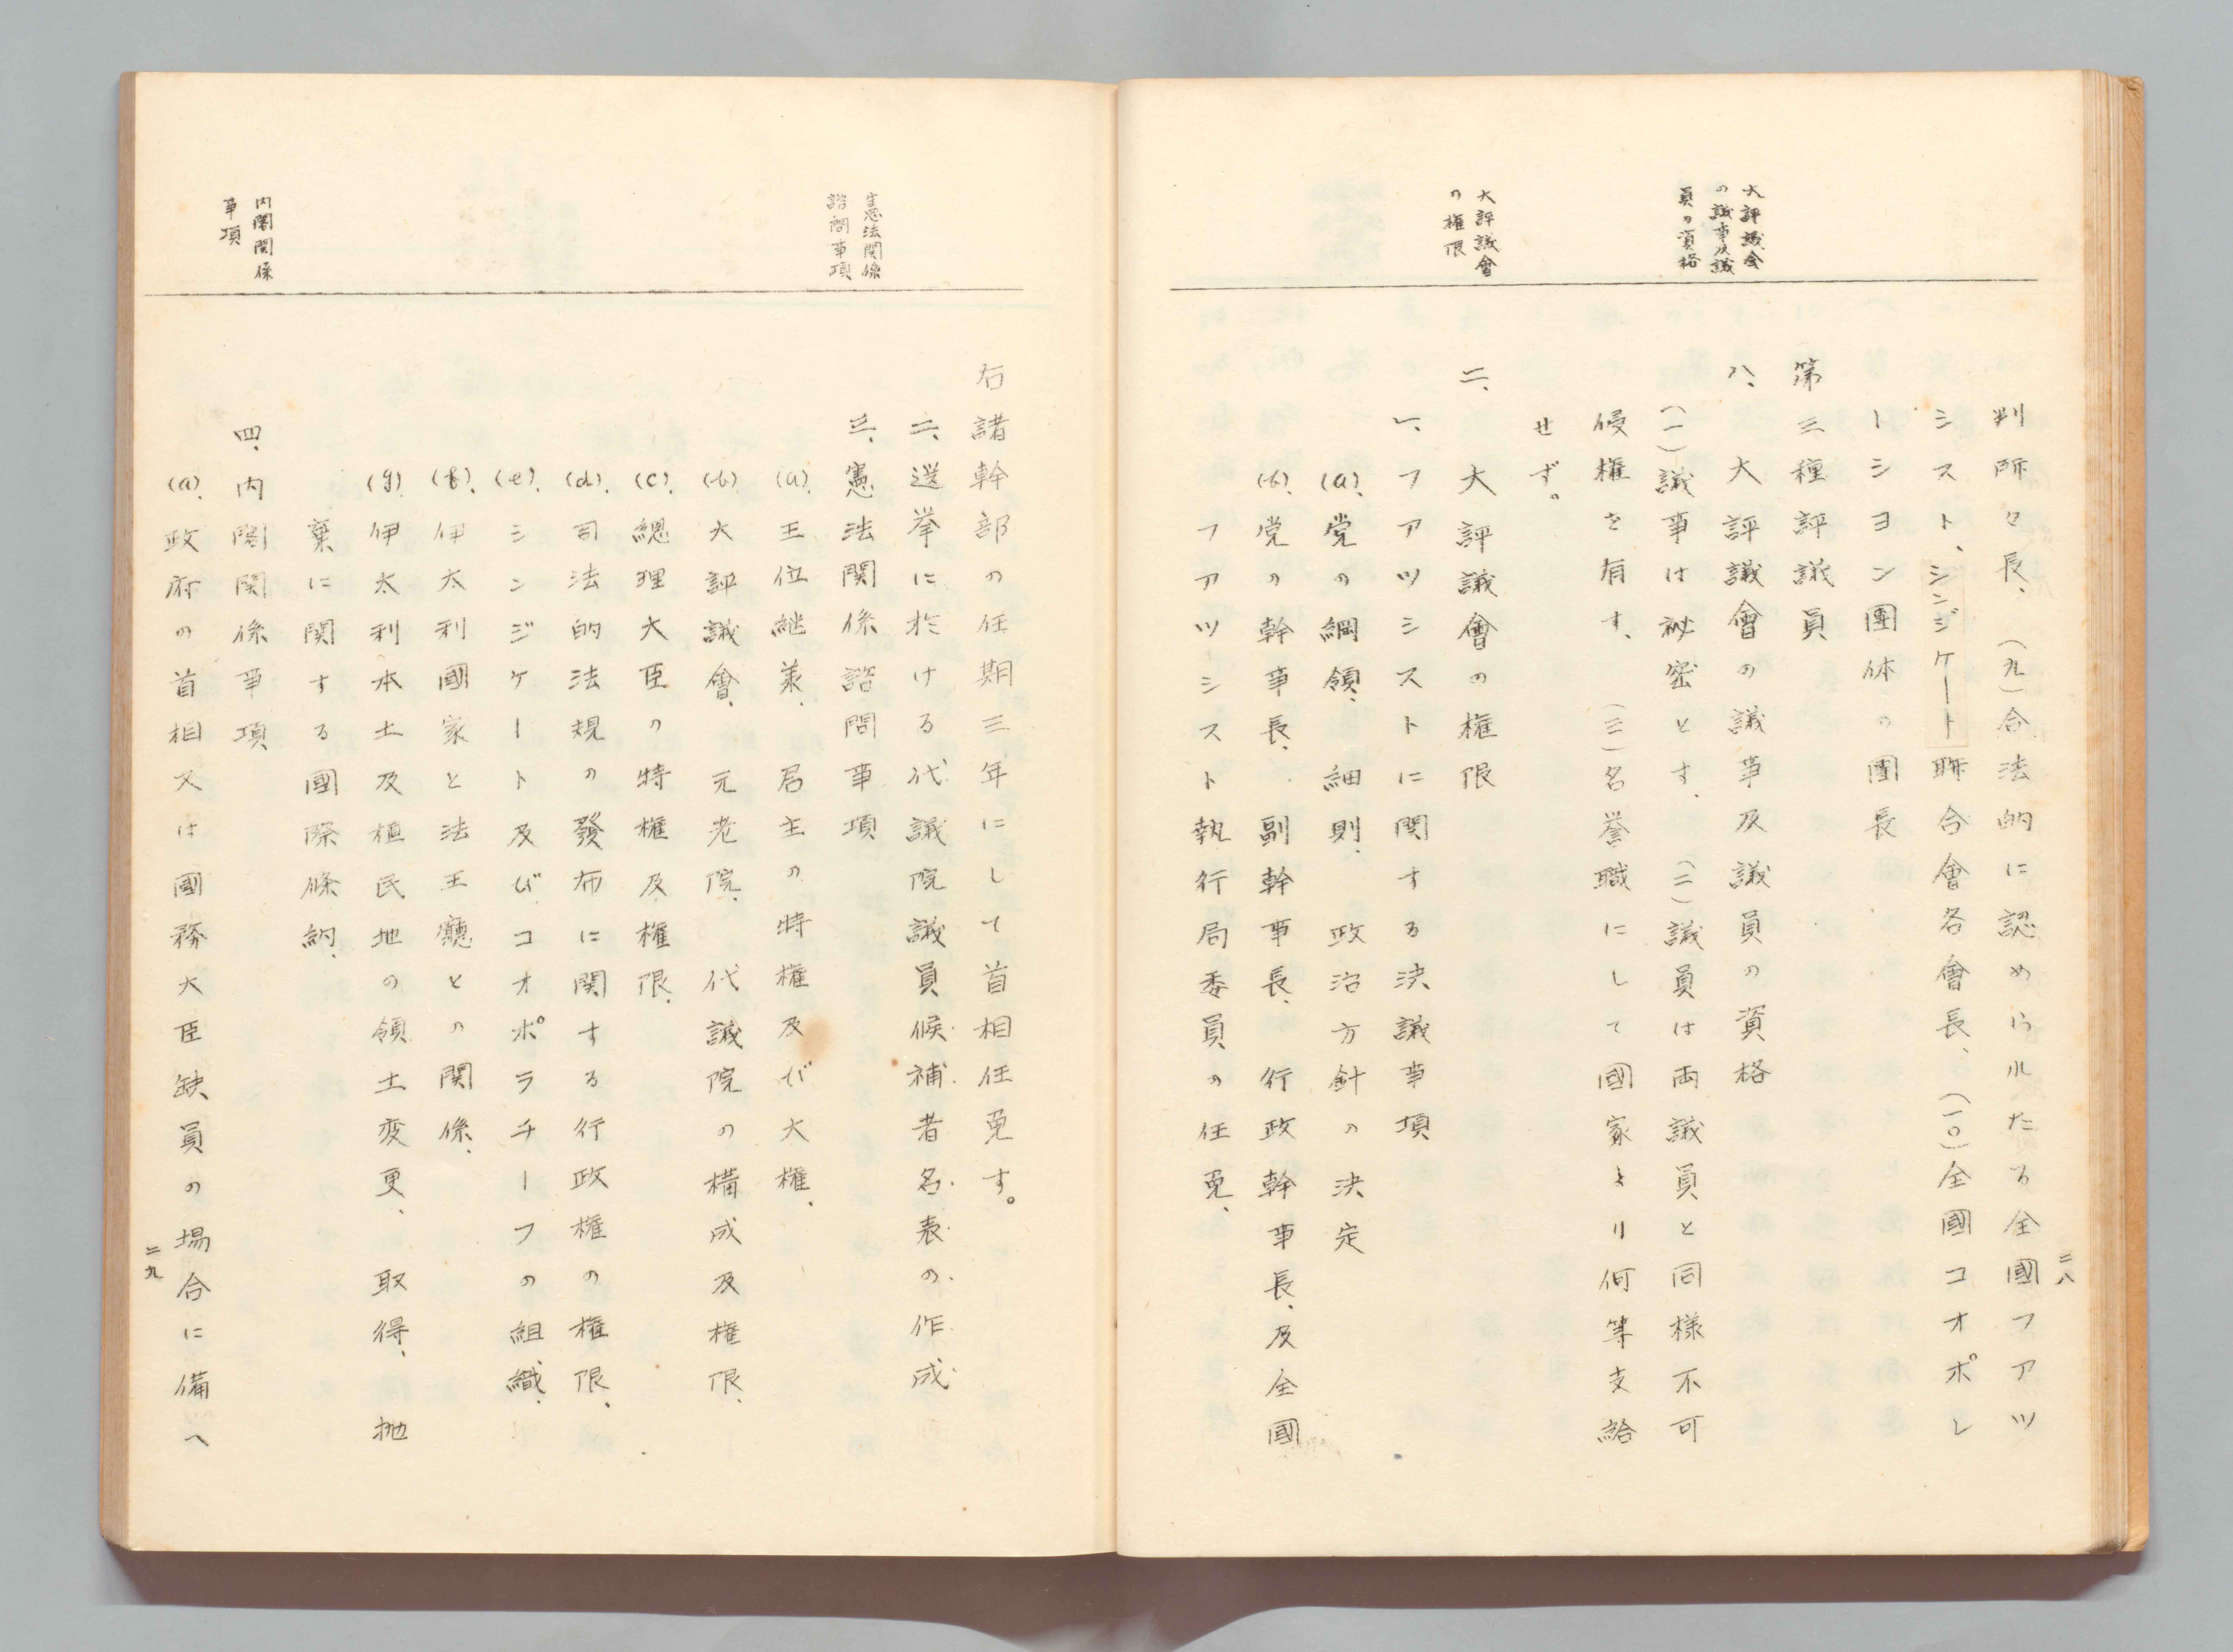 二八
大評議会
の議事及議
員の資格
大評議會
の権限
判所々長、(九)合法的に認めらルたる全國フアツ
シスト、シンジケート聯合會各會長、(一〇)全國コオポレ
ーシヨン團体の團長
第三種評議員
八、大評議會の議事及議員の資格
(一)議事は祕密とす、(二)議員は両議員と同様不可
侵権を有す、(三)名誉職にして國家より何等支給
せず。
二、大評議會の権限
一、フアツシストに関する決議事項
(a)、党の綱領、細則、政治方針の決定
(b)、党の幹事長、副幹事長、行政幹事長、及全國
フアツシスト執行局委員の任免、
憲法関係
諮問事項
内閣関係
事項
右諸幹部の任期三年にして首相任免す。
二、選挙に於ける代議院議員候補者名表の作成
三、憲法関係諮問事項
(a)、王位継承、君主の特権及び大権、
(b)、大評議會、元老院、代議院の構成及権限、
(c)、總理大臣の特権及権限、
(d)、司法的法規の發布に関する行政権の権限、
(e)、シンジケート及びコオポラチーフの組織、
(f)、伊太利國家と法王廳との関係、
(g)、伊太利本土及植民地の領土変更、取得、抛
棄に関する國際條約、
四、内閣関係事項
(a)、政府の首相又は國務大臣缺員の場合に備へ
二九